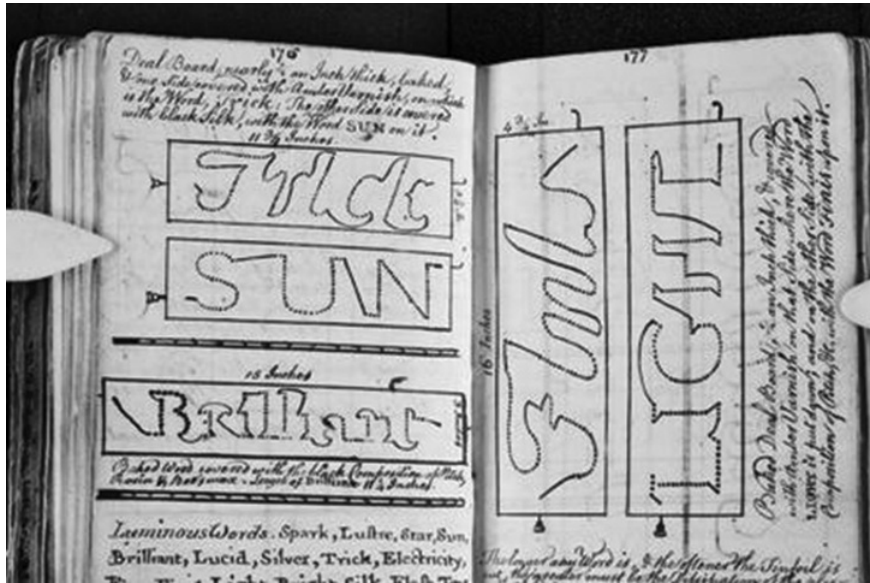 176
Deal Board, nearly ¼ an Inch thick, baked,
& one Side covered with Amber Varnish, on which
is the Word, Trick: The other Side is covered
with black Silk, with the Word SUN on it.
11 ¾ Inches.
Trick
SUN
15 Inches
Brilliant
Baked Wood covered with the black Composition of Pitch,
Rosin & Bees wax - Length of Brilliant 11 ¼ Inches.
Luminous Words. Spark, Lustre, Star, Sun,
Brilliant, Lucid, Silver, Trick, Electricity,
Light, Bright, Silk
177
4 ¾ In
16 Inches
LIGHT
Baked Deal Board, ½ an Inch thick, & covered
with Amber Varnish on that Side where the Word
LIGHT is put down; and on the other Side with the
Composition of Rosin, &c. with the Word upon it.
The longer any Word is, & the oftener the Tinfoil is